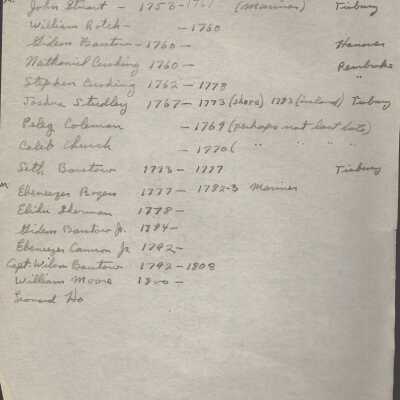 John Stuart - 1756 - 1767 (Mariner) Tisbury
William Rotch - - 1760
Gideon Barstow - 1760 - Hanover
Nathaniel Cushing 1760 - Pembroke
Stephen Cushing 1762 - 1778 "
Joshua Studley 1767 - 1773 (shore) 1783 (inland) Tisbury
Peleg Coleman - 1769 (perhaps not last date)
Caleb Church - 1770 ( " " " "
Seth Barstow 1773 - 1777 Tisbury
Ebeneezer Rogers 1777 - 1782-3 Mariner
Elihu Sherman 1778 -
Gideon Barstow Jr. 1784 -
Ebeneezer Cannon Jr 1792 -
Capt. Wilson Barstow 1792 - 1808
William Moore 1800 -
Leonard Ho